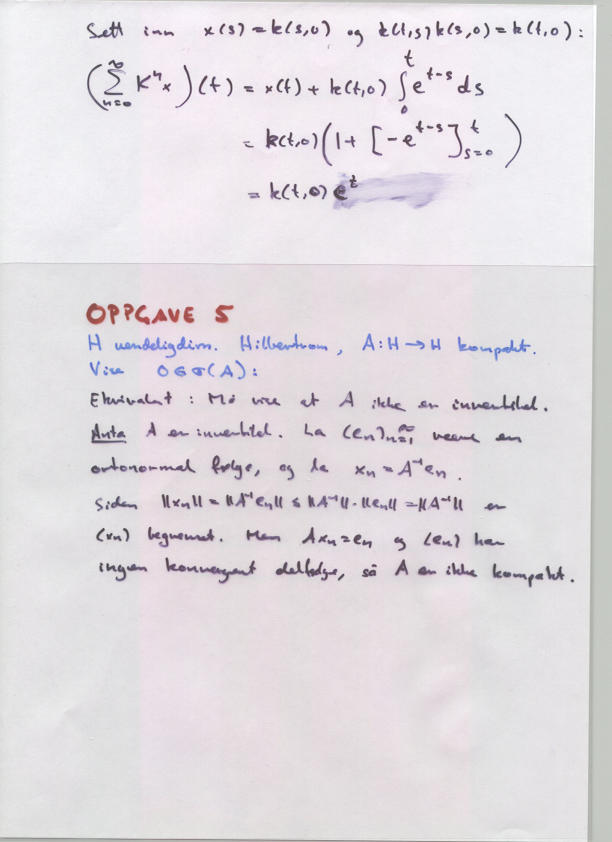 Sett inn x(s) = k(s,0) og k(t,s)k(s,0) = k(t,0):
(∑_{n=0}^{∞} Kⁿx)(t) = x(t) + k(t,0) ∫_0^t e^{t-s} ds
= k(t,0)(1 + [-e^{t-s}]_{s=0}^{t})
= k(t,0) e^t
OPPGAVE 5
H uendeligdim. Hilbertrom, A: H → H kompakt.
Vise 0 ∈ σ(A):
Ekvivalent: Må vise at A ikke er invertibel.
Anta A er invertibel. La (e_n)_{n=1}^{∞} være en
ortonormal følge, og la x_n = A⁻¹e_n.
Siden ||x_n|| = ||A⁻¹e_n|| ≤ ||A⁻¹||·||e_n|| = ||A⁻¹|| er
(x_n) begrenset. Men Ax_n = e_n og (e_n) har
ingen konvergent delfølge, så A er ikke kompakt.